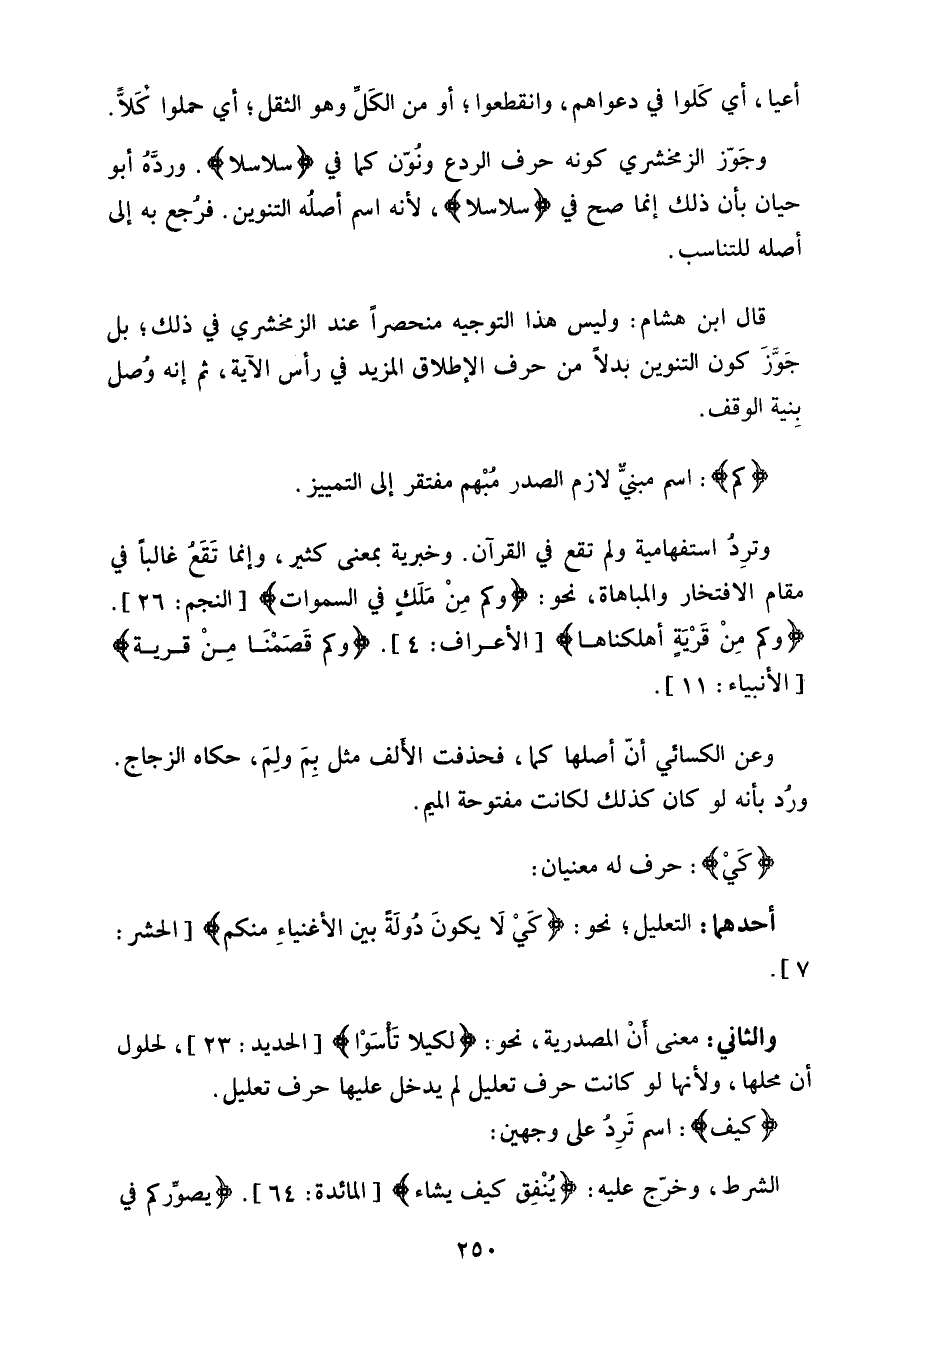 أعيا، أي كَلوا في دعواهم، وانقطعوا؛ أو من الكَلِّ وهو الثقل؛ أي حملوا كْلاًّ.
وجَوّز الزمخشري كونه حرف الردع ونُوّن كما في ﴿سلاسلا﴾. وردَّهُ أبو
حيان بأن ذلك إنما صح في ﴿سلاسلا﴾، لأنه اسم أصلُه التنوين. فرُجع به إلى
أصله للتناسب.
قال ابن هشام: وليس هذا التوجيه منحصراً عند الزمخشري في ذلك؛ بل
جَوَّزَ كون التنوين بدلاً من حرف الإطلاق المزيد في رأس الآية، ثم إنه وُصل
بِنية الوقف.
﴿كم﴾: اسم مبنيٌّ لازم الصدر مُبْهم مفتقر إلى التمييز.
وترِدُ استفهامية ولم تقع في القرآن. وخبرية بمعنى كثير، وإنما تَقَعُ غالباً في
مقام الافتخار والمباهاة، نحو: ﴿وكم مِنْ مَلَكٍ في السموات﴾ [النجم: ٢٦].
﴿وكم مِنْ قَرْيَةٍ أهلكناها﴾ [الأعراف: ٤]. ﴿وكم قَصَمْنَا مِنْ قرية﴾
[الأنبياء: ١١].
وعن الكسائي أنّ أصلها كما، فحذفت الأَلف مثل بِمَ ولِمَ، حكاه الزجاج.
ورُد بأنه لو كان كذلك لكانت مفتوحة الميم.
﴿كَيْ﴾: حرف له معنيان:
أحدهما: التعليل؛ نحو: ﴿كَيْ لَا يكونَ دُولَةً بين الأغنياءِ منكم﴾ [الحشر:
٧].
والثاني: معنى أَنْ المصدرية، نحو: ﴿لكيلا تَأْسَوْا﴾ [الحديد: ٢٣]، لحلول
أن محلها، ولأنها لو كانت حرف تعليل لم يدخل عليها حرف تعليل.
﴿كيف﴾: اسم تَرِدُ على وجهين:
الشرط، وخرّج عليه: ﴿يُنْفِق كيف يشاء﴾ [المائدة: ٦٤]. ﴿يصوِّركم في
٢٥٠